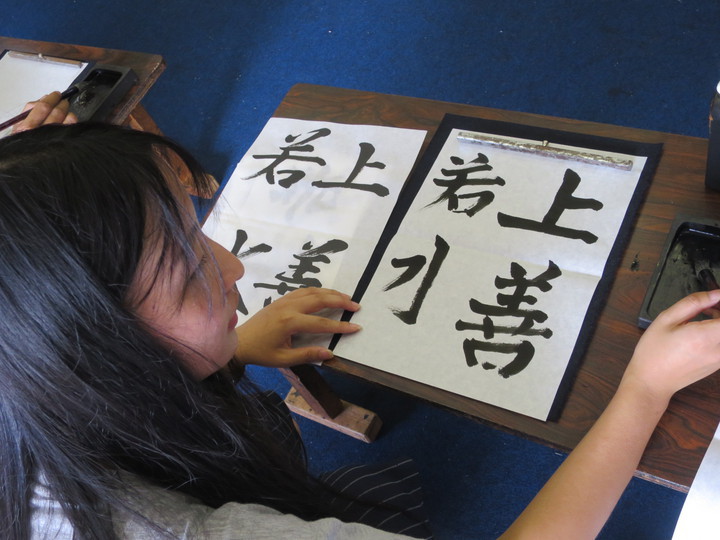 上善
若
上善
若水